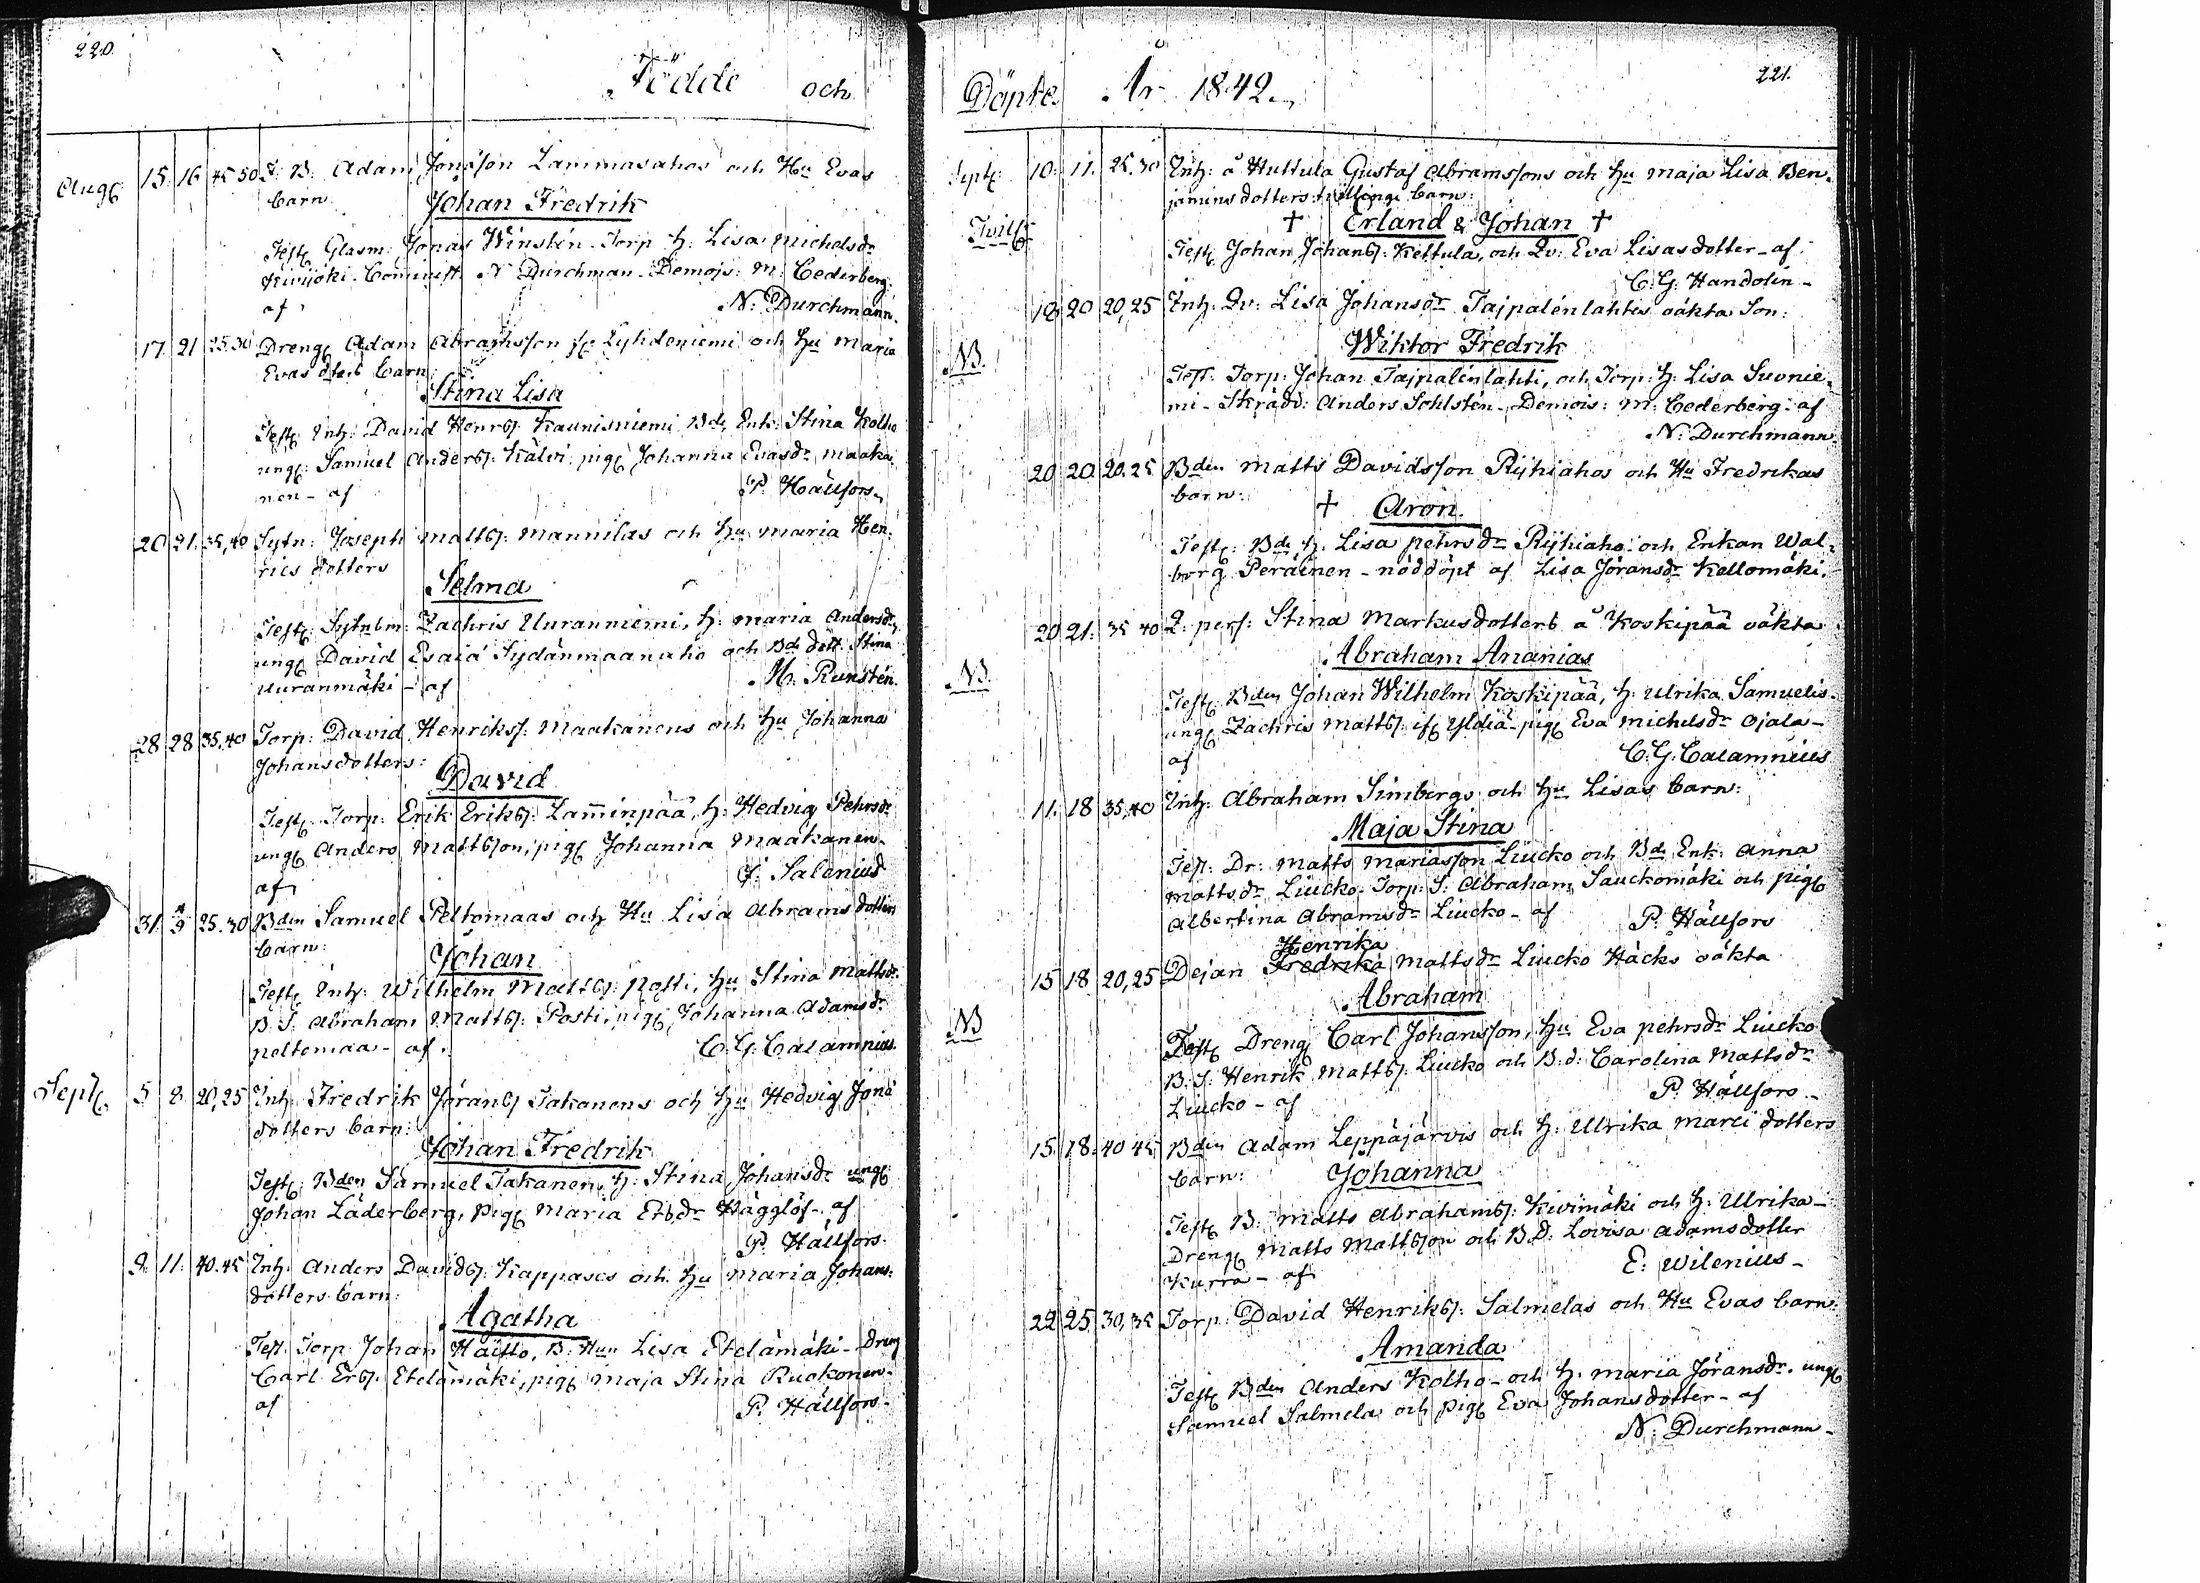 220.
Födde och
Aug: 15. 16 45 50 T. B. Adam Jonsson Lammasahos och Hu Evas
barn Johan Fredrik
Test: Glasm: Jonas Winstén Torp h: Lisa Michelsdr
Kivijoki N Durchman Demois: M: Cederberg.
af N: Durchmann.
17 21 25.30 Dreng Adam Abramsson fr Lyhdeniemi och hu Maria
Evas dters barn
Stina Lisa
Test: Inh: David Henrs: Kaunisniemi Bde Enk: Stina Kolho
ung: Samuel Anders: Kälvi pig: Johanna Evasdr, Maaka-
nen - af P. Hällfors.
20 21. 35,40 Sytn: Joseph Matts: Mannilas och hu Maria Hen-
rics dotters
Selma
Test: Sytnbm: Zachris Uuranniemi, h: Maria Andersdr,
ung David Esaiä Sydänmaanaho och Bde dott: Stina
Uuranmäki - af M. Runstén.
28 28 35.40 Torp: David Henrikss: Maakanens och hu Johanna
Johansdotters:
David
Test: Torp: Erik Eriks: Lam̄inpää, h: Hedvig Pehrsdr
ung Anders Mattson, pig Johanna Maakanen-
af J. Salenius
31. 4/9 25.30 Bden Samuel Peltomaas och Hu Lisa Abramsdotters
barn:
Johan
Test: Inh: Wilhelm Matts: Posti, hu Stina Mattsdr.
B. S. Abraham Matts: Posti, pig Johanna Adamsdr
Peltomaa - af. C. G. Calamnius.
Sept. 5 8. 20,25 Inh Fredrik Jörans Takanens och hu Hedvig Jonä
dotters barn:
Johan Fredrik
Test: Bden Samuel Takanen, h: Stina Johansdr ung
Johan Läderberg, pig Maria Ersdr Hägglöf - af
P. Hällfors.
9. 11. 40.45 Inh: Anders Davids: Kappases och hu Maria Johans-
dotters barn:
Agatha
Test Torp Johan Häitto, B: Hun Lisa Etelämäki - Dreng
Carl Ers: Etelämäki, pig Maja Stina Ruokonen-
af P. Hällfors-
221.
Döpte År 1842.
Sept: 10. 11. 25.30 Inh: å Huttula Gustaf Abramssons och hu Maja Lisa Ben-
jamins dotters tvillinge barn:
Tvill: † Erland & Johan †
Test: Johan Johans: Kettula, och Qv: Eva Lisasdotter - af
C. G. Handolin -
19 20 20,25 Inh: Qv: Lisa Johansdr Tajpalénlahtis oäkta Son:
Wiktor Fredrik
NB.
Test: Torp: Johan Tajpalénlahti, och Torp: h: Lisa Suonie-
mi - Skrädd: Anders Sohlstén - Demois: M: Cederberg - af
N: Durchmann.
20 20 20.25 Bden Matts Davidsson Ryhiahos och Hu Fredrikas
barn:
† Aron.
Test: Bde h: Lisa Pehrsdr Ryhiaho och Enkan Wal-
borg Peräinen - nöddöpt af Lisa Jöransdr Kellomäki.
20 21. 35 40 L: pers: Stina Markusdotters å Koskipää oäkta
Abraham Ananias
NB.
Test: Bden Johan Wilhelm Koskipää, h: Ulrika Samuelis-
ung Zachris Matts: if Yldiä pig Eva Michelsdr Ojala -
af C. G. Calamnius
11. 18 35,40 Inh: Abraham Simbergs och hu Lisas barn:
Maja Stina
Test: Dr: Matts Mariasson Liucko och Bde Enk: Anna
Mattsdr Liucko. Torp: S: Abraham Sauckomäki och pig
Albertina Abramsdr Liucko - af P. Hällfors
Henrika
15 18 20,25 Dejan Fredrika Mattsdr Liucko Häcks oäkta
Abraham
NB
Test Dreng Carl Johansson, hu Eva Pehrsdr Liucko
B. S: Henrik Matts: Liucko och B: d: Carolina Mattsdr
Liucko - af P. Hällfors -
15. 18. 40 45 Bden Adam Leppäjärvis och h: Ulrika Marci dotters
barn: Johanna
Test B: Matts Abrahams: Kivimäki och h: Ulrika -
Dreng Matts Mattson och B.D: Lovisa Adamsdotter
Kurra - af E: Wilenius -
22 25 30,35 Torp: David Henriks: Salmelas och Hu Evas barn:
Amanda
Test Bden Anders Kolho - och h: Maria Jöransdr. ung
Samuel Salmela och pig Eva Johansdotter - af
N: Durchmann -